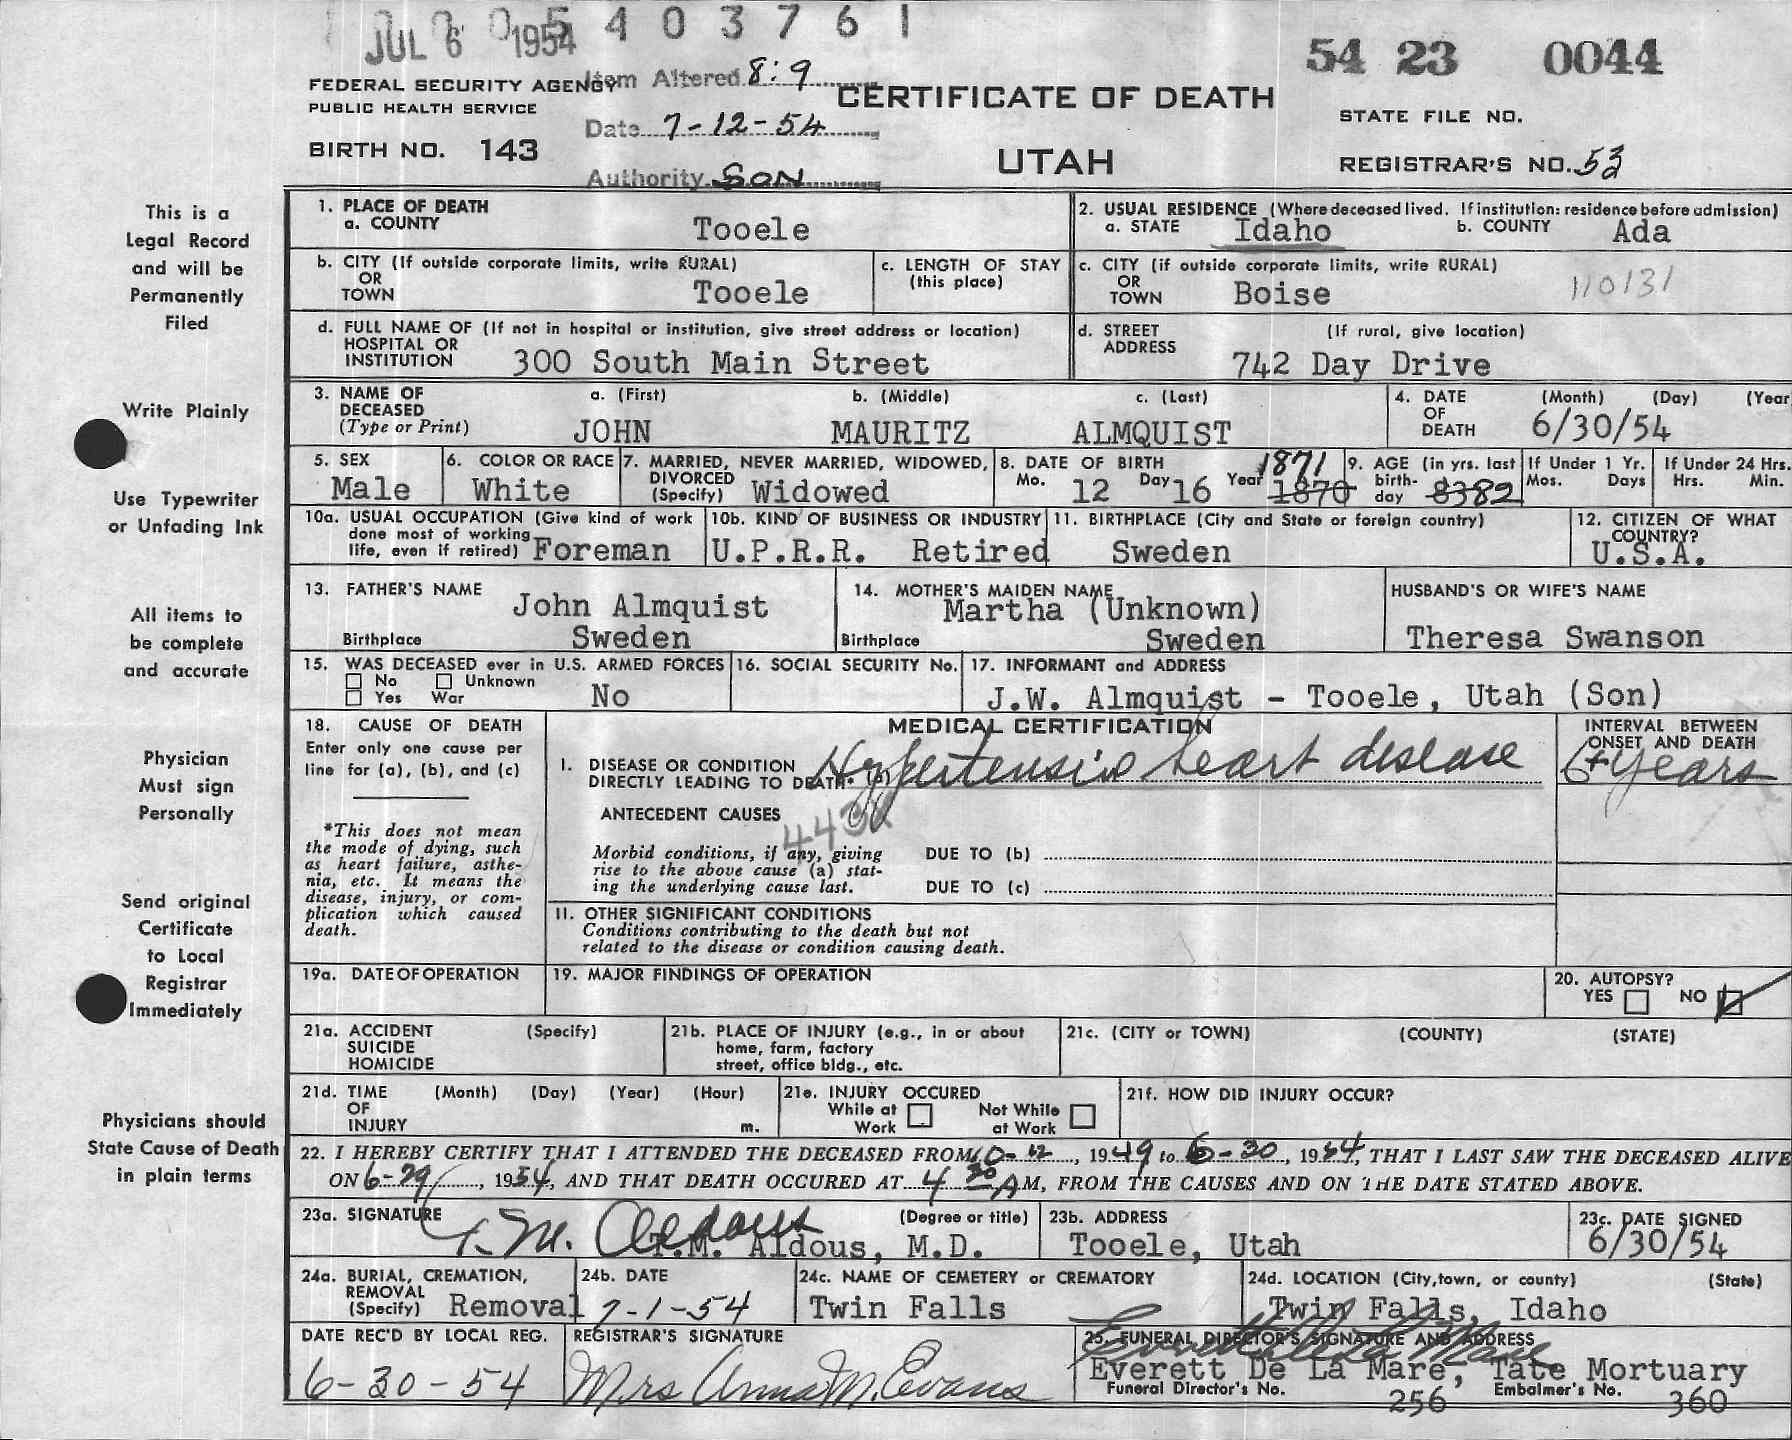 JUL 6 1954
0 5 4 0 3 7 6 1
54 23 0044
FEDERAL SECURITY AGENCY
PUBLIC HEALTH SERVICE
BIRTH NO. 143
Item Altered 8:9
Date 7-12-54
Authority Son
CERTIFICATE OF DEATH
UTAH
STATE FILE NO.
REGISTRAR'S NO. 53
This is a
Legal Record
and will be
Permanently
Filed
Write Plainly
Use Typewriter
or Unfading Ink
All items to
be complete
and accurate
Physician
Must sign
Personally
Send original
Certificate
to Local
Registrar
Immediately
Physicians should
State Cause of Death
in plain terms
1. PLACE OF DEATH
a. COUNTY Tooele
2. USUAL RESIDENCE (Where deceased lived. If institution: residence before admission)
a. STATE Idaho b. COUNTY Ada
b. CITY (If outside corporate limits, write RURAL)
OR
TOWN Tooele
c. LENGTH OF STAY
(this place)
c. CITY (if outside corporate limits, write RURAL)
OR
TOWN Boise
110131
d. FULL NAME OF (If not in hospital or institution, give street address or location)
HOSPITAL OR
INSTITUTION 300 South Main Street
d. STREET (If rural, give location)
ADDRESS 742 Day Drive
3. NAME OF a. (First) b. (Middle) c. (Last)
DECEASED
(Type or Print) JOHN MAURITZ ALMQUIST
4. DATE (Month) (Day) (Year
OF
DEATH 6/30/54
5. SEX
Male
6. COLOR OR RACE
White
7. MARRIED, NEVER MARRIED, WIDOWED,
DIVORCED
(Specify) Widowed
8. DATE OF BIRTH 1871
Mo. 12 Day 16 Year 1870
9. AGE (in yrs. last
birth-
day 8382
If Under 1 Yr.
Mos. Days
If Under 24 Hrs.
Hrs. Min.
10a. USUAL OCCUPATION (Give kind of work
done most of working
life, even if retired) Foreman
10b. KIND OF BUSINESS OR INDUSTRY
U.P.R.R. Retired
11. BIRTHPLACE (City and State or foreign country)
Sweden
12. CITIZEN OF WHAT
COUNTRY?
U.S.A.
13. FATHER'S NAME
John Almquist
Birthplace Sweden
14. MOTHER'S MAIDEN NAME
Martha (Unknown)
Birthplace Sweden
HUSBAND'S OR WIFE'S NAME
Theresa Swanson
15. WAS DECEASED ever in U.S. ARMED FORCES
No Unknown
Yes War No
16. SOCIAL SECURITY No.
17. INFORMANT and ADDRESS
J.W. Almquist - Tooele, Utah (Son)
18. CAUSE OF DEATH
Enter only one cause per
line for (a), (b), and (c)
*This does not mean
the mode of dying, such
as heart failure, asthe-
nia, etc. It means the
disease, injury, or com-
plication which caused
death.
MEDICAL CERTIFICATION
I. DISEASE OR CONDITION
DIRECTLY LEADING TO DEATH* (a) Hypertensive heart disease
INTERVAL BETWEEN
ONSET AND DEATH
6+ years
ANTECEDENT CAUSES
443X
Morbid conditions, if any, giving
rise to the above cause (a) stat-
ing the underlying cause last.
DUE TO (b)
DUE TO (c)
II. OTHER SIGNIFICANT CONDITIONS
Conditions contributing to the death but not
related to the disease or condition causing death.
19a. DATE OF OPERATION
19. MAJOR FINDINGS OF OPERATION
20. AUTOPSY?
YES NO
21a. ACCIDENT (Specify)
SUICIDE
HOMICIDE
21b. PLACE OF INJURY (e.g., in or about
home, farm, factory
street, office bldg., etc.
21c. (CITY or TOWN) (COUNTY) (STATE)
21d. TIME (Month) (Day) (Year) (Hour)
OF
INJURY m.
21e. INJURY OCCURED
While at Work Not While at Work
21f. HOW DID INJURY OCCUR?
22. I HEREBY CERTIFY THAT I ATTENDED THE DECEASED FROM 10-12, 1949 to 6-30, 1954, THAT I LAST SAW THE DECEASED ALIVE
ON 6-29, 1954, AND THAT DEATH OCCURED AT 4 30 A M, FROM THE CAUSES AND ON THE DATE STATED ABOVE.
23a. SIGNATURE (Degree or title)
T.M. Aldous
T.M. Aldous, M.D.
23b. ADDRESS
Tooele, Utah
23c. DATE SIGNED
6/30/54
24a. BURIAL, CREMATION,
REMOVAL
(Specify) Removal
24b. DATE
7-1-54
24c. NAME OF CEMETERY or CREMATORY
Twin Falls
24d. LOCATION (City, town, or county) (State)
Twin Falls, Idaho
DATE REC'D BY LOCAL REG.
6-30-54
REGISTRAR'S SIGNATURE
Mrs Anna M. Evans
25. FUNERAL DIRECTOR'S SIGNATURE AND ADDRESS
Everett De La Mare
Everett De La Mare, Tate Mortuary
Funeral Director's No. 256 Embalmer's No. 360